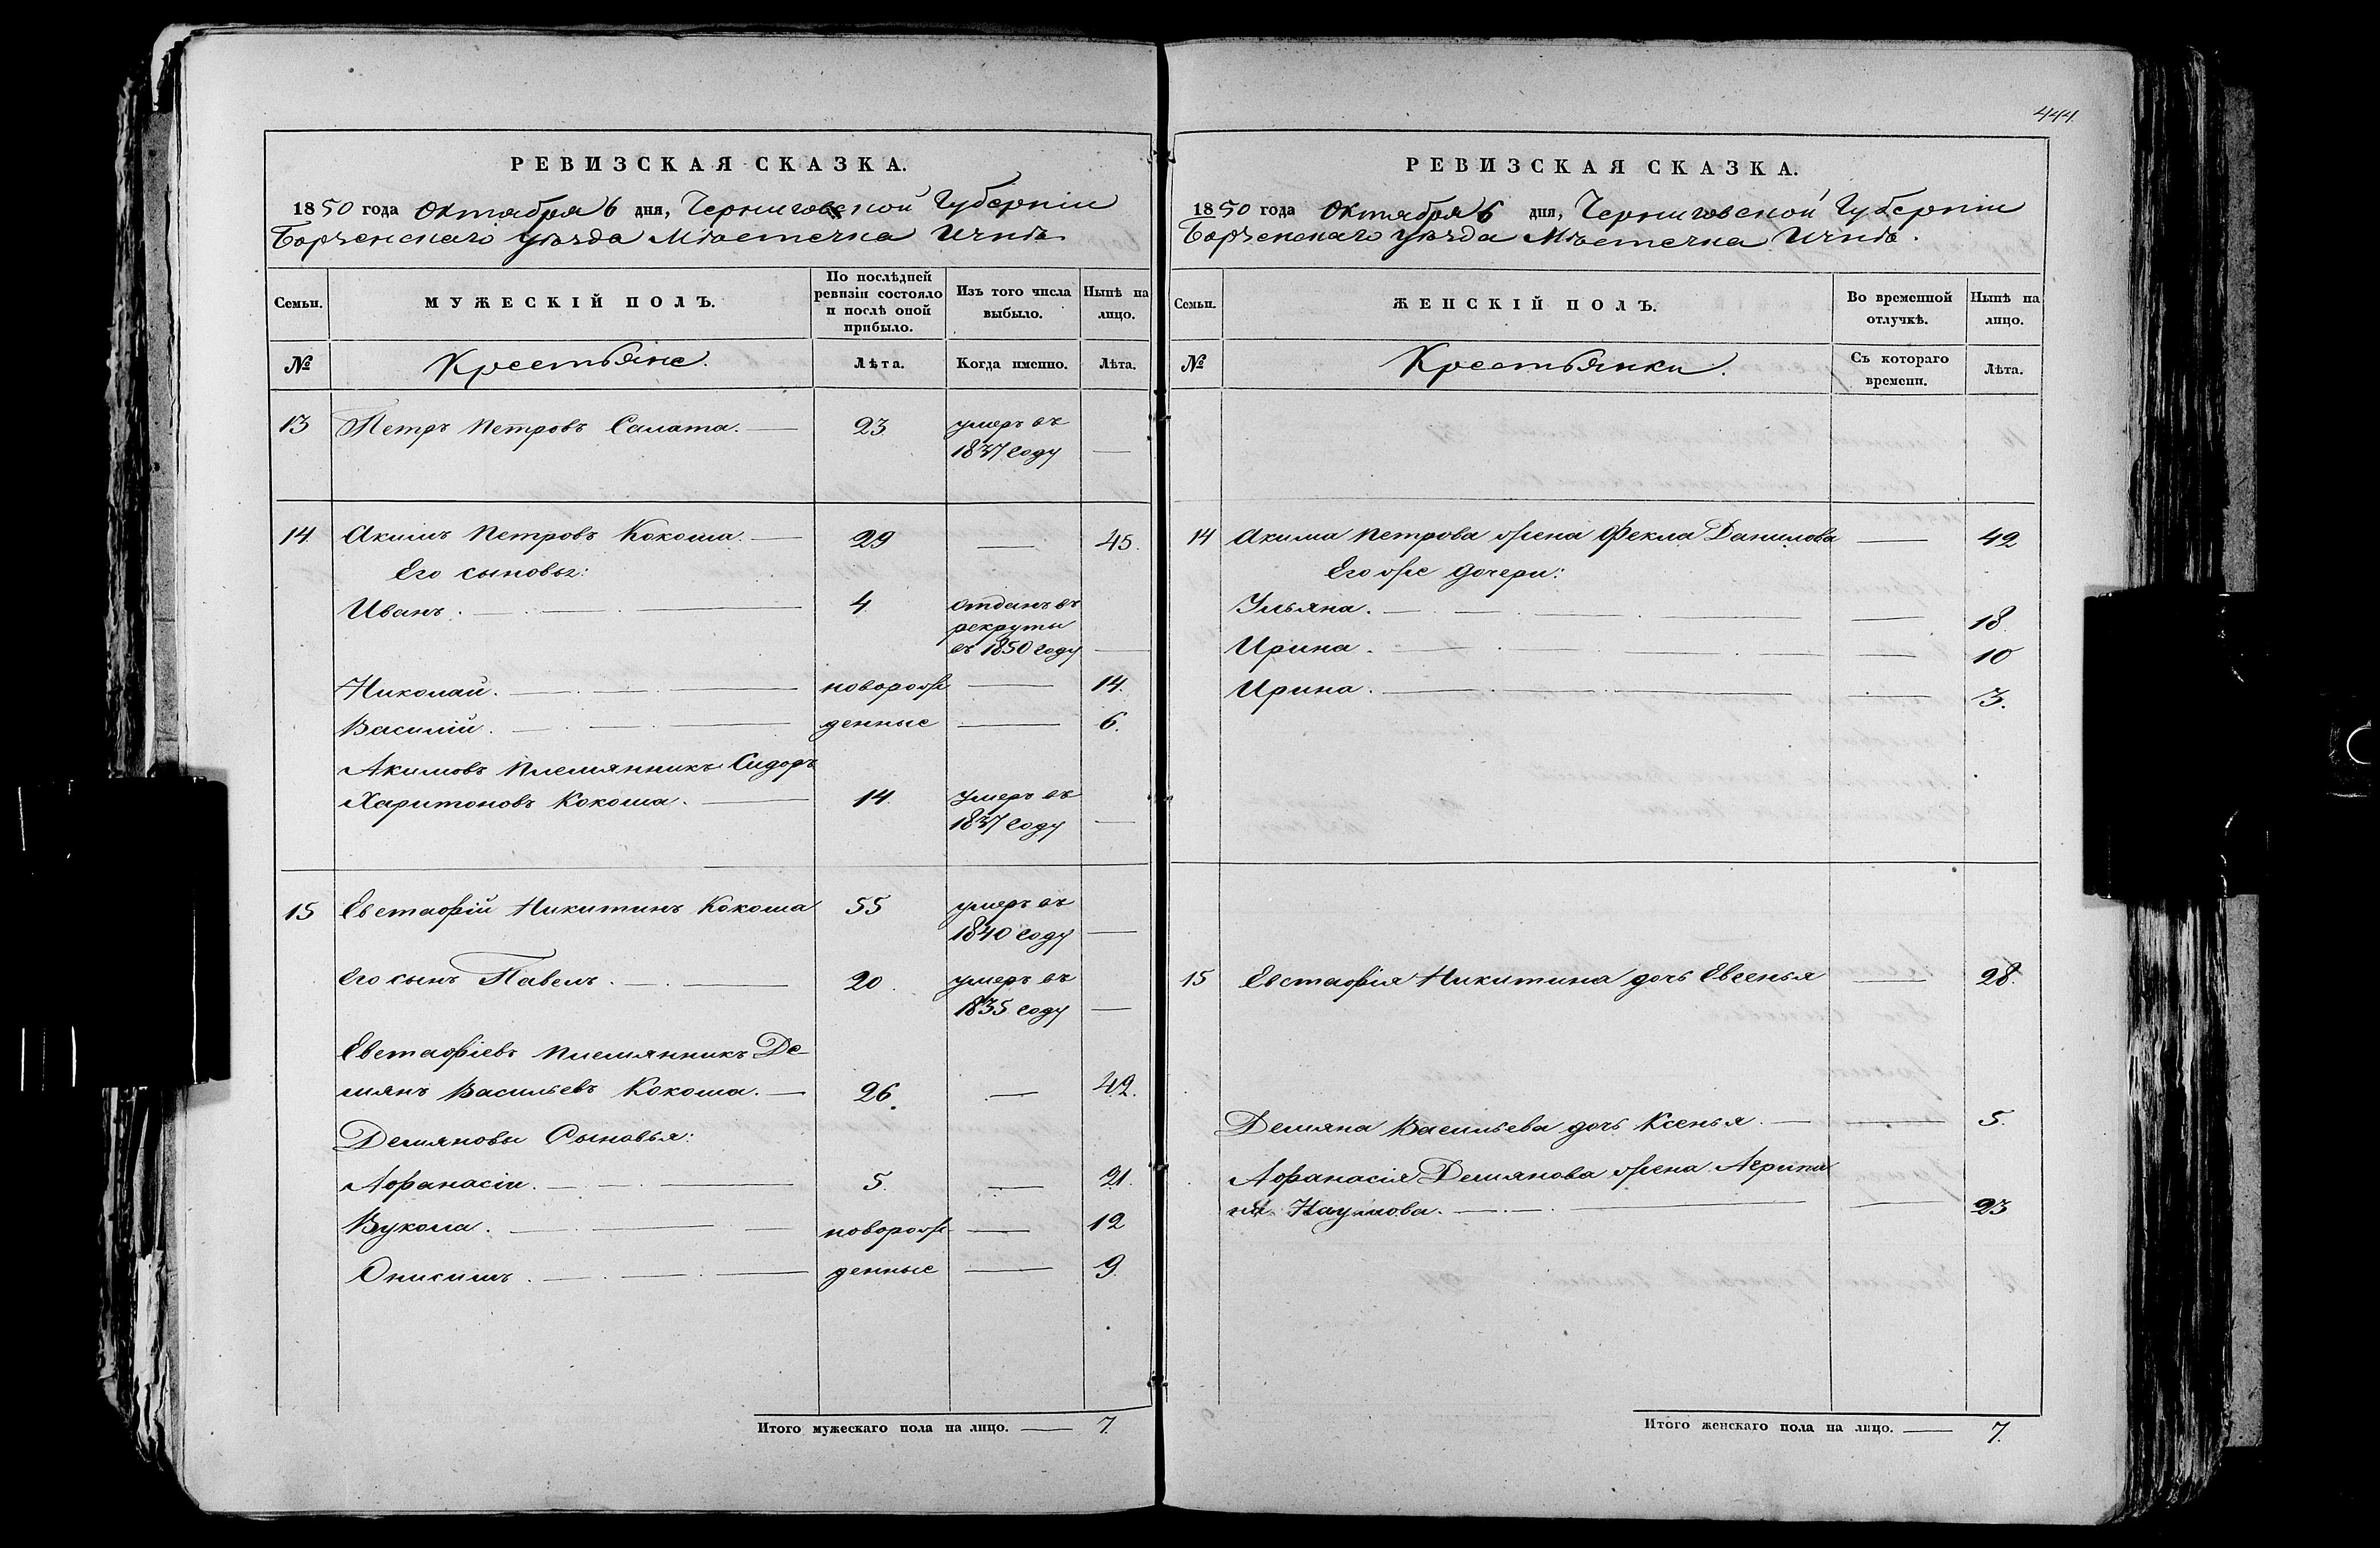 РЕВИЗСКАЯ СКАЗКА.
1850 года Октября 6 дня, Черниговской Губерніи
Борзенскаго уѣзда Мѣстечка Ични
Семьи.
МУЖЕСКІЙ ПОЛЪ.
По послѣдней
ревизіи состояло
и послѣ оной
прибыло.
Изъ того числа
выбыло.
Нынѣ на
лицо.
№
Крестьяне.
Лѣта.
Когда именно.
Лѣта.
13 Петръ Петровъ Салата. — 23 умеръ въ
1837 году —
14 Акимъ Петровъ Кокоша. — 29 — 45.
Его сыновья:
Иванъ. — 4 отданъ въ
рекруты
въ 1850 году —
Николай. — новорож — 14.
Василій. — денные — 6.
Акимовъ племянникъ Сидоръ
Харитоновъ Кокоша. — 14. умеръ въ
1837 году —
15 Евстафій Никитинъ Кокоша 55 умеръ въ
1840 году —
Его сынъ Павелъ. — 20. умеръ въ
1835 году —
Евстафіевъ племянникъ Де-
мянъ Васильевъ Кокоша. — 26. — 42.
Демяновы Сыновья:
Афанасій. — 5. — 21.
Вукола. — новорож — 12
Онисимъ. — денные — 9.
Итого мужескаго пола на лицо. — 7.
444.
РЕВИЗСКАЯ СКАЗКА.
1850 года Октября 6 дня, Черниговской Губерніи
Борзенскаго уѣзда Мѣстечка Ични.
Семьи.
ЖЕНСКІЙ ПОЛЪ.
Во временной
отлучкѣ.
Нынѣ на
лицо.
№
Крестьянки.
Съ котораго
времени.
Лѣта.
14 Акима Петрова жена Фекла Данилова — 42
Его же дочери:
Ульяна. — 18.
Ирина. — 10
Ирина. — 3.
15 Евстафія Никитина дочь Евсенья — 28.
Демяна Васильева дочь Ксенья. — 5.
Афанасія Демянова жена Агрипи
на Наумова. — 23
Итого женскаго пола на лицо. — 7.